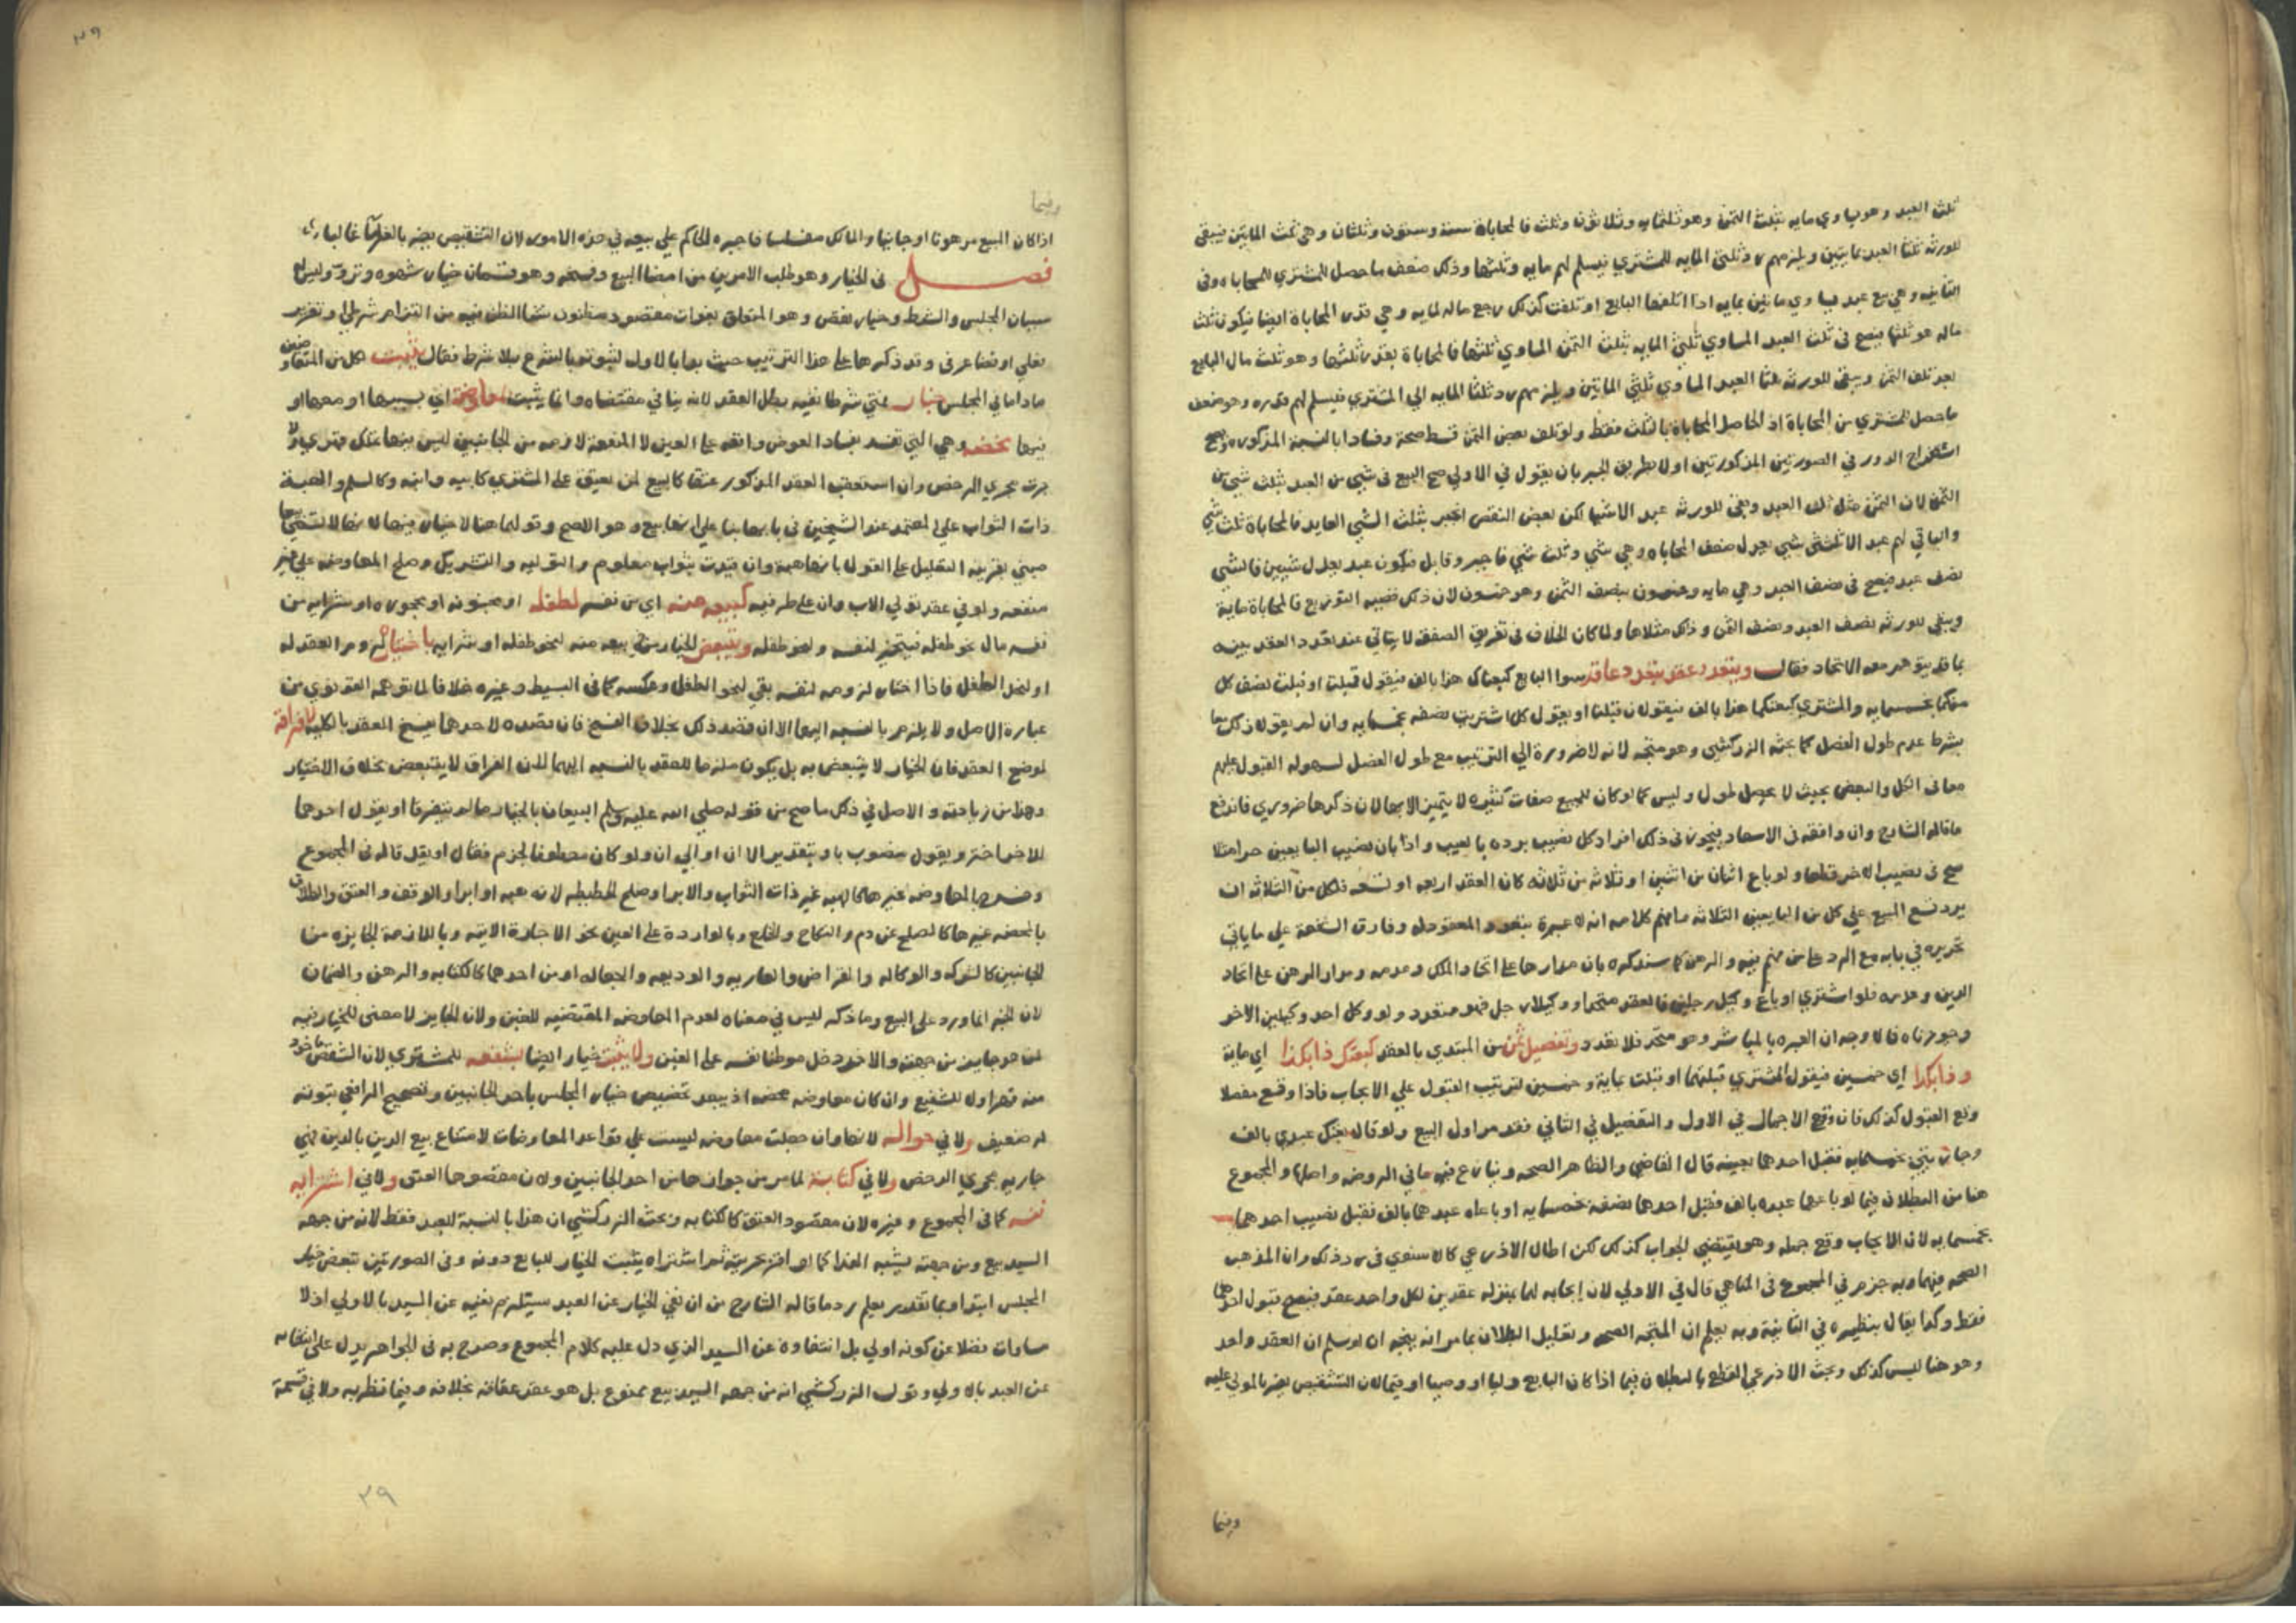 ثلث العبد وهو يساوي مايه بثلث الثمن وهو ثلثمايه وثلاثون وثلث فالمحاباة ستة وستون وثلثان وهي ثلث المايتين فيبقى
للورثه ثلثا العبد بمايتين ويلزمهم رد ثلثي المايه للمشتري فيسلم لهم مايه وثلثها وذلك ضعف ما حصل للمشتري للمحاباه وفى
الثانيه وهي بيع عبد يساوي مايتين بمايه اذا اتلفها البايع او تلفت كذلك يرجع ماله لمايه وهي قدر المحاباة ايضا فيكون ثلث
ماله هو ثلثها فيصح فى ثلث العبد المساوي ثلثي المايه بثلث الثمن المساوي ثلثها فالمحاباة بقدر ثلثها وهو ثلث مال البايع
بعد تلف الثمن ويبقى للورثه ثلثا العبد المساوي ثلثي المايتين ويلزمهم رد ثلثا المايه الي المشتري فيسلم لهم قدره وهو ضعف
ما حصل للمشتري من المحاباة اذ الحاصل المحاباة بالثلث فقط ولو تلف بعض الثمن قسط صحة وفسادا بالنسبة المذكوره ويصح
استخراج الدور في الصورتين المذكورتين اولا بطريق الجبر بان يقول في الاولي صح البيع فى شيي من العبد بثلث شيي من
الثمن لان الثمن مثل ثلث العبد وبقى للورثه عبد الا شيا لكن بعض النقص انجبر بثلث الشيي العايد فالمحاباة ثلثا شيي
والباقي لهم عبد الا ثلثى شيي يعدل ضعف المحاباه وهي شيي وثلث شيي فاجبر وقابل فيكون عبد يعدل شييين فالشي
نصف عبد فيصح فى نصف العبد وهي مايه وخمسون بنصف الثمن وهو خمسون لان ذلك قضيه التوزيع فالمحاباة ماية
ويبقي للورثه نصف العبد ونصف الثمن وذلك مثلاها ولما كان الخلاف فى تفريق الصفقه لا يتاتي عند تعدد العقد بينه
بما قد يتوهم معه الاتحاد فقال ويتعدد عقد بتعدد عاقد سوا البايع كبعناك هذا بالف فيقول قبلت او قبلت نصف كل
منكما بخمسمايه والمشتري كبعتكما هذا بالف فيقولان قبلنا او يقول كل اشتريت نصفه بخمسمايه وان لم يقولا ذلك معا
بشرط عدم طول الفصل كما بحثه الزركشي وهو متجه لانه لا ضرورة الي الترتيب مع طول الفصل لسهوله القبول عليهم
معا فى الكل والبعض بحيث لا يحصل طول وليس كما لو كان للمبيع صفات كثيره لا يتميز الا بها لان ذكرها ضروري فاندفع
ما قاله الشارح وان وافقه فى الاسعاد فيجوز فى ذلك افراد كل نصيب برده بالعيب واذا بان نصيب البايعين حرا مثلا
صح فى نصيب الاخر قطعا ولو باع اثنان من اثنين او ثلاثه من ثلاثه كان العقد اربعه او تسعه فلكل من الثلاثه ان
يرد تسع المبيع علي كل من البايعين الثلاثه وافهم كلامه انه لا عبرة بتعدد المعقود له وفارق الشفعة علي ما ياتي
تحريره في بابه مع الرد على من فهم فيه والرهن كما سنذكره بان مدارها على اتحاد الملك وعدمه ومدار الرهن على اتحاد
الدين وعدمه فلو اشتري او باع وكيل رجلين فالعقد متحد او وكيلا رجل فهو متعدد ولو وكل احد وكيلين الاخر
وجوزناه فالاوجه ان العبره بالمباشر وهو متحد فلا تعدد وتفصيل ثمن من المبتدي بالعقد كبعتك ذا بكذا اي ماية
وذا بكذا اي خمسين فيقول المشتري قبلتهما او قبلت بماية وخمسين لترتيب القبول علي الايجاب فاذا وقع مفصلا
وقع القبول كذلك فان وقع الاجمال في الاول والتفصيل في الثاني فقد مر اول البيع ولو قال بعتك عبدي بالف
وجاريتي بخمسمايه فقبل احدهما بعينه قال القاضي والظاهر الصحه وينازع فيه ما في الروضه واصلها والمجموع
هنا من البطلان فيما لو باعهما عبده بالف فقبل احدهما نصفه بخمسمايه او باعاه عبدهما بالف فقبل نصيب احدهما
بخمسمايه لان الايجاب وقع جمله وهو يقتضي الجواب كذلك لكن اطال الاذرعي كالاسنوي فى رد ذلك وان المذهب
الصحه فيهما وبه جزم في المجموع فى المناهي قال في الاولي لان ايجابه لهما بمنزله عقدين لكل واحد عقد فيصح قبول احدهما
فقط وكذا يقال بنظيره في الثانية وبه يعلم ان المتجه الصحه وتعليل البطلان بما مر انه يتجه ان لو سلم ان العقد واحد
وهو هنا ليس كذلك وبحث الاذرعي القطع بالبطلان فيما اذا كان البايع وليا او وصيا او قيما لان التشقيص يضر بالمولي عليه
وفيما
٢٩
وفيما
اذا كان المبيع مرهونا او جانيا والمالك مفلسا فاجبره الحاكم علي بيعه في هذه الامور لان التشقيص يضر بالغرما غالبا
فصل فى الخيار وهو طلب خير الامرين من امضا البيع وفسخه وهو قسمان خيار شهوه وتروٍّ وليس له
سببان المجلس والشرط وخيار نقص وهو المتعلق بفوات مقصود مظنون نشا الظن فيه من التزام شرطي او تغرير
فعلي او قضا عرفى وقد ذكرها على هذا الترتيب حيث بدا بالاول لثبوته بالشرع بلا شرط فقال يثبت لكل من المتعاوضين
ما داما في المجلس خيار فمتي شرطا نفيه بطل العقد لانه ينافي مقتضاه وانما يثبت بمعاوضة اي بسببها او معها او
فيها محضه وهي التي تفسد بفساد العوض واقعه على العين لا المنفعة لازمه من الجانبين ليس فيها تملك قهري ولا
جرت مجري الرخص وان استعقب العقد المذكور عتقا كالبيع لمن يعتق على المشتري كابيه وابنه وكالسلم والهبة
ذات الثواب علي المعتمد عند الشيخين فى بابها بنا علي انها بيع وهو الاصح وقولهما هنا لا خيار فيها لانها لا تسمي بيعا
مبني بقرينة التعليل على القول بانها هبة وان قيدت بثواب معلوم والتوليه والتشريك وصلح المعاوضه علي غير
منفعه ولو في عقد تولي الاب وان على طرفيه كبيعه منه اي من نفسه لطفله او مجنونه او محجوره او شرايه من
نفسه مال نحو طفله فيتخير لنفسه ولنحو طفله ويتبعض الخيار من بيعه منه لنحو طفله او شرايه باختياره لزوم العقد له
او لنحو الطفل فاذا اختار لزومه لنفسه بقي لنحو الطفل وعكسه كما فى البسيط وغيره خلافا لما توهمه القونوي من
عبارة الاصل ولا يلزم بالنسبه اليهما الا ان قصد ذلك بخلاف الفسخ فان قصده لاحدهما يفسخ العقد بالكليه لا فراقه
لموضع العقد فان الخيار لا يتبعض به بل يكون ملزما للعقد بالنسبه اليهما لان الفراق لا يتبعض بخلاف الاختيار
وهذا من زيادته والاصل في ذلك ما صح من قوله صلي الله عليه وسلم البيعان بالخيار ما لم يتفرقا او يقول احدهما
للاخر اختر ويقول منصوب باو بتقدير الا ان او الي ان ولو كان معطوفا لجزم فقال او يقل قاله فى المجموع
وخرج بالمعاوضه غيرها كالهبه غير ذات الثواب والابرا وصلح الحطيطه لانه هبه او ابرا والوقف والعتق والطلاق
بالمحضه غيرها كالصلح عن دم والنكاح والخلع وبالوارده على العين نحو الاجارة الاتيه وباللازمة الجايزه من
الجانبين كالشركه والوكاله والقراض والعاريه والوديعه والجعاله او من احدهما كالكتابه والرهن والضمان
لان الخبر انما ورد على البيع وما ذكر ليس في معناه لعدم المعاوضه المقتضيه للغبن ولان الجايز لا معنى للخيار فيه
لمن هو جايز من جهته والاخر دخل موطنا نفسه على الغبن ولا يثبت خيار ايضا بشفعه للمشتري لان الشقص ماخوذ
منه قهرا ولا للشفيع وان كان معاوضه محضه اذ يبعد تخصيص خيار المجلس باحد الجانبين وتصحيح الرافعي ثبوته
له ضعيف ولا في حواله لانها وان جعلت معاوضه ليست علي قواعد المعاوضات لامتناع بيع الدين بالدين فهي
جاريه مجري الرخص ولا في كتابة لما مر من جوازها من احد الجانبين ولان مقصودها العتق ولا في اشترايه
نفسه كما فى المجموع وغيره لان مقصود العتق كالكتابه وبحث الزركشي ان هذا بالنسبة للعبد فقط لانه من جهه
السيد بيع ومن جهته يشبه الفدا كما لو اقر بحريته ثم اشتراه يثبت الخيار للبايع دونه وفى الصورتين تبعض خيار
المجلس ابتدا وبما تقرر يعلم رد ما قاله الشارح من ان نفي الخيار عن العبد يستلزم نفيه عن السيد بالاولي اذ لا
مساواة فضلا عن كونه اولي بل انتفاوه عن السيد الذي دل عليه كلام المجموع وصرح به فى الجواهر يدل على انتفايه
عن العبد بالاولي وقول الزركشي انه من جهه السيد بيع ممنوع بل هو عقد عتاقه بخلافه وفيما نظر به ولا في قسمة
٢٩